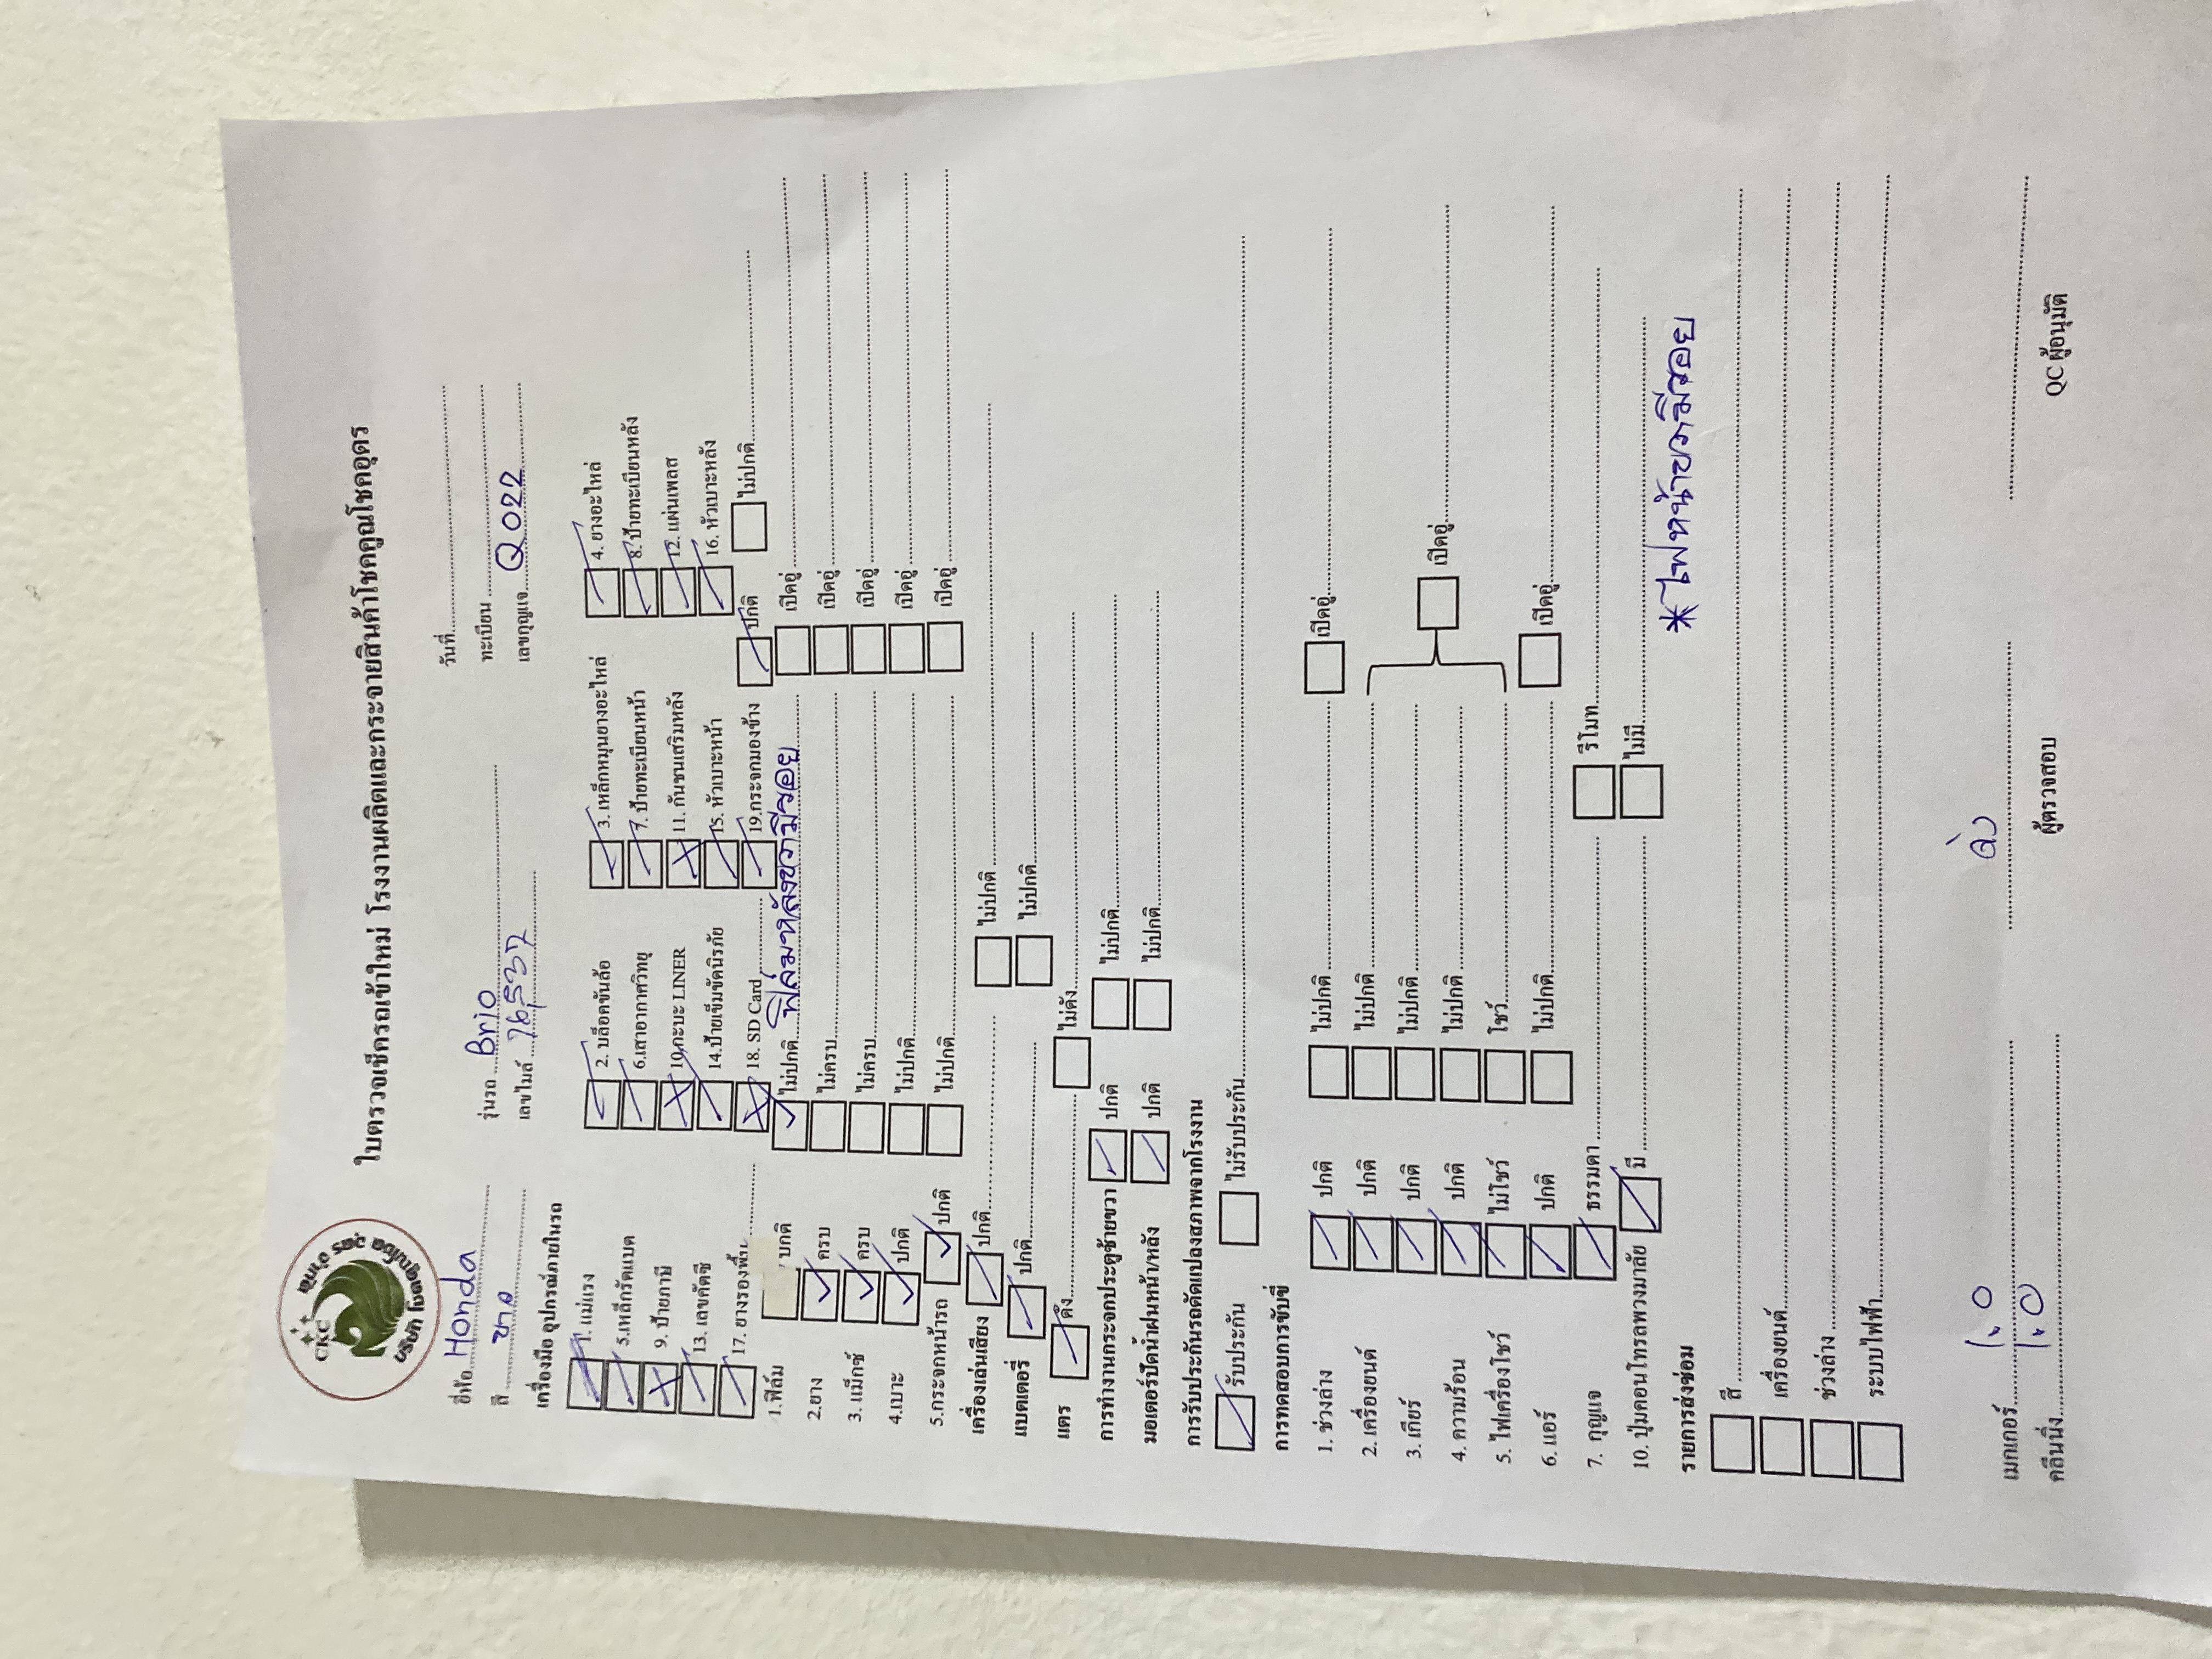 CKC
บริษัท โชคคูณโชค อุดร จำกัด
ใบตรวจเช็ครถเข้าใหม่ โรงงานผลิตและกระจายสินค้าโชคคูณโชคอุดร
ยี่ห้อ Honda รุ่นรถ Brio วันที่
สี ขาว เลขไมล์ ทะเบียน
เลขกุญแจ Q022
เครื่องมือ อุปกรณ์ภายในรถ
1. แม่แรง 2. บล็อคขันล้อ 3. เหล็กหมุนยางอะไหล่ 4. ยางอะไหล่
5.เหล็กรัดแบต 6.เสาอากาศวิทยุ 7. ป้ายทะเบียนหน้า 8. ป้ายทะเบียนหลัง
9. ป้ายภาษี 10.กะบะ LINER 11. กันชนเสริมหลัง 12. แผ่นเพลส
13. เลขคัตซี 14.ป้ายเข็มขัดนิรภัย 15. หัวเบาะหน้า 16. หัวเบาะหลัง
17. ยางรองพื้น 18. SD Card 19.กระจกมองข้าง ปกติ ไม่ปกติ
1.ฟิล์ม ปกติ ไม่ปกติ ฟิล์มหลังขวามีรอย เปิดอู่
2.ยาง ครบ ไม่ครบ เปิดอู่
3. แม็กซ์ ครบ ไม่ครบ เปิดอู่
4.เบาะ ปกติ ไม่ปกติ เปิดอู่
5.กระจกหน้ารถ ปกติ ไม่ปกติ เปิดอู่
เครื่องเล่นเสียง ปกติ ไม่ปกติ
แบตเตอรี่ ปกติ ไม่ปกติ
แตร ดัง ไม่ดัง
การทำงานกระจกประตูซ้ายขวา ปกติ ไม่ปกติ
มอเตอร์ปัดน้ำฝนหน้า/หลัง ปกติ ไม่ปกติ
การรับประกันรถดัดแปลงสภาพจากโรงงาน
รับประกัน ไม่รับประกัน
การทดสอบการขับขี่
1. ช่วงล่าง ปกติ ไม่ปกติ เปิดอู่
2. เครื่องยนต์ ปกติ ไม่ปกติ
3. เกียร์ ปกติ ไม่ปกติ เปิดอู่
4. ความร้อน ปกติ ไม่ปกติ
5. ไฟเครื่องโชว์ ไม่โชว์ โชว์
6. แอร์ ปกติ ไม่ปกติ เปิดอู่
7. กุญแจ ธรรมดา รีโมท
10. ปุ่มคอนโทรลพวงมาลัย มี ไม่มี
รายการส่งซ่อม * ไฟหน้าขวามีรอย
สี
เครื่องยนต์
ช่วงล่าง
ระบบไฟฟ้า
เมกเกอร์
คลีนนิ่ง ผู้ตรวจสอบ QC ผู้อนุมัติ